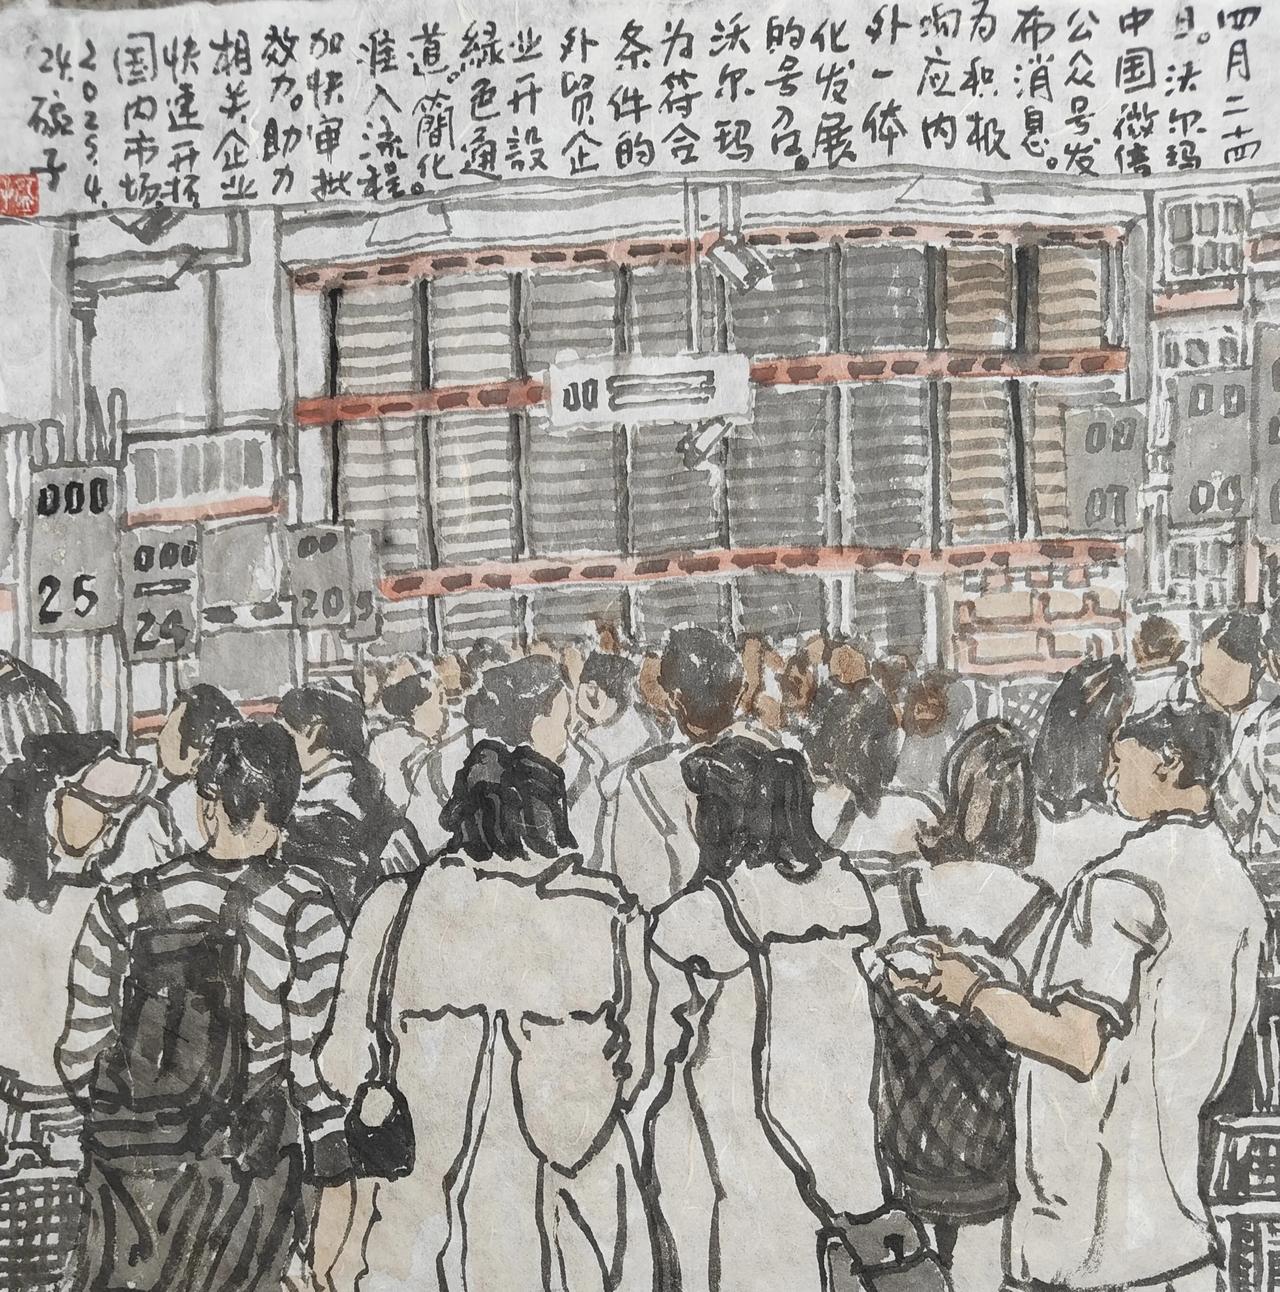 四月二十四
日。沃尔玛
中国微信
公众号发
布消息。
为积极
响应内
外一体
化发展
的号召。
沃尔玛
为符合
条件的
外贸企
业开設
緑色通
道。簡化
准入流程。
加快审批
效力。助力
相关企业
快速开拓
国内市场.
2025.4.
24.碗子
000
25
000
24
00